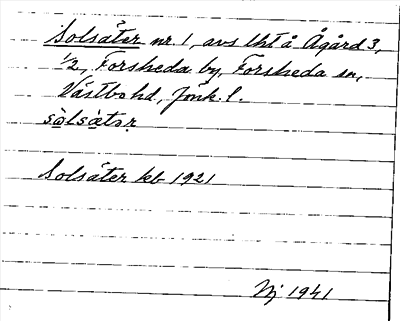 Solsäter nr. 1, avs lht å Ågård 3,
1/2, Forsheda by, Forsheda sn,
Västbo hd, Jönk. l.
sòlsä̀tər
Solsäter kb 1921
Nj 1941